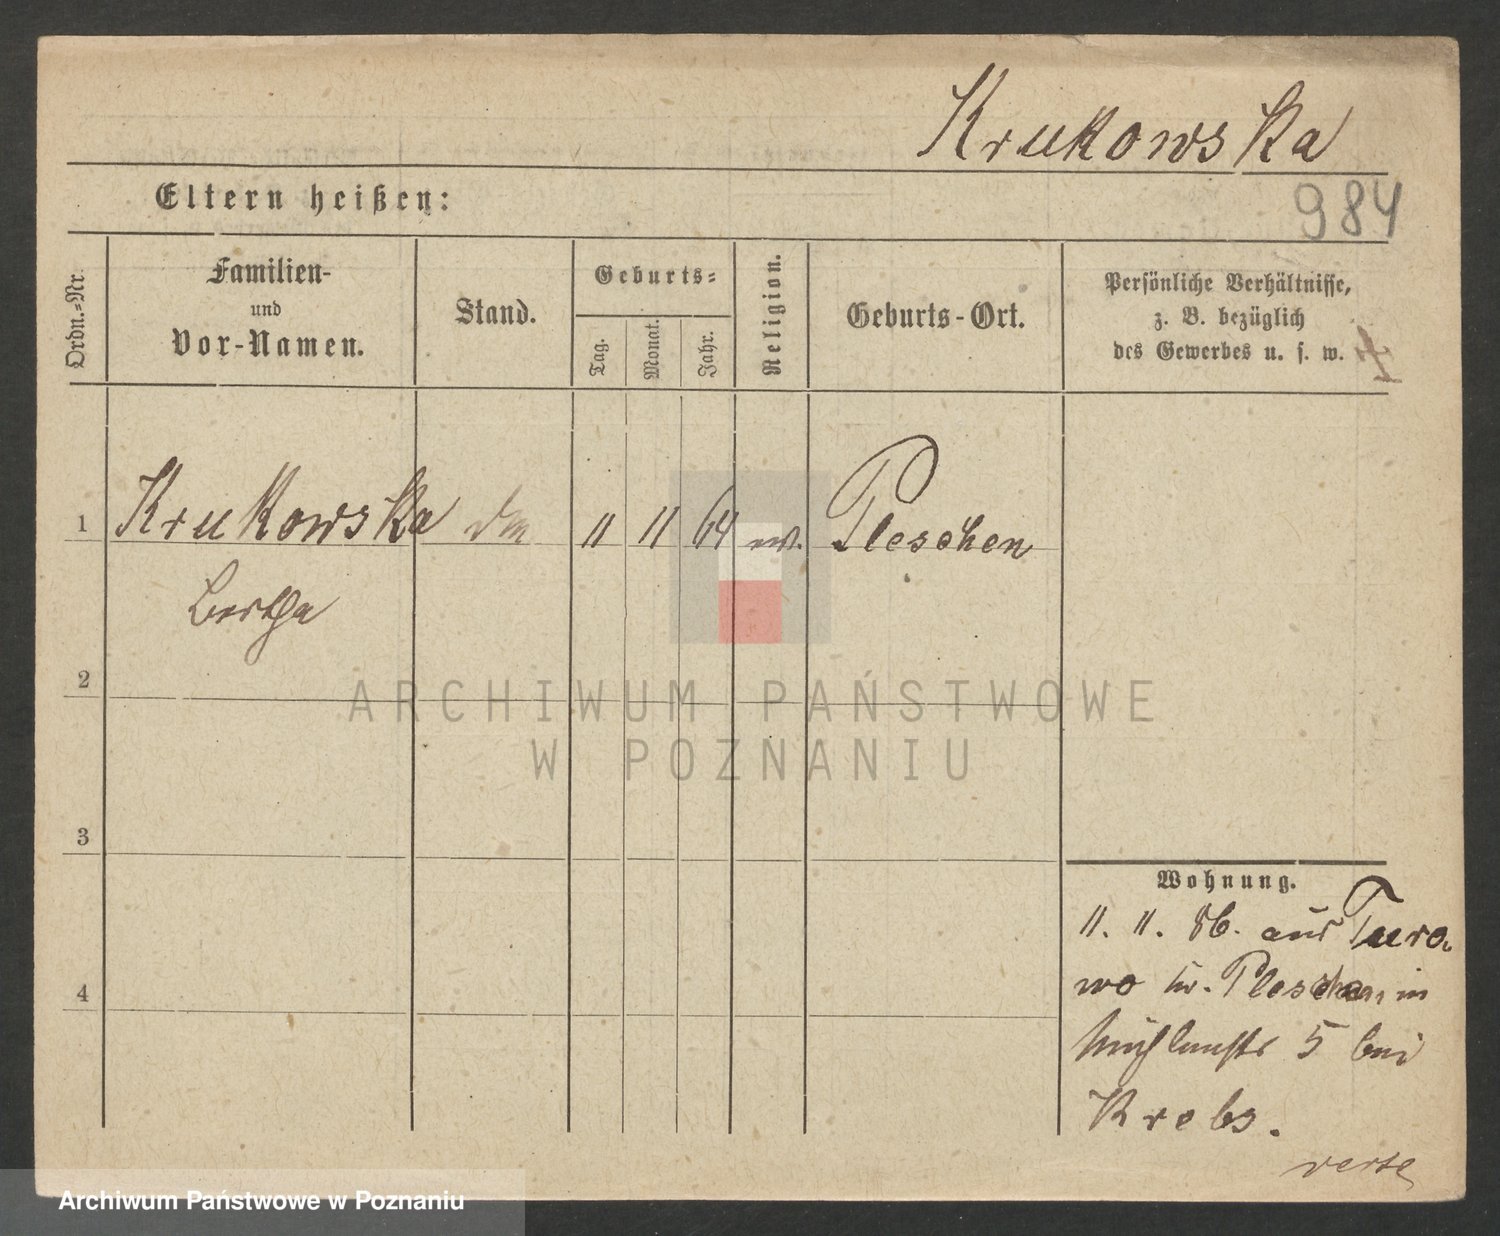 Krukowska
Eltern heißen:
984
Ordn.-Nr.
Familien-
und
Vor-Namen.
Stand.
Geburts-
Tag.
Monat.
Jahr.
Religion.
Geburts-Ort.
Persönliche Verhältnisse,
z. B. bezüglich
des Gewerbes u. s. w.
1 Krukowska 11 11 64 ev. Pleschen
Bertha
2
3
4
ARCHIWUM PAŃSTWOWE
W POZNANIU
Wohnung.
11. 11. 86. aus Turo-
wo Kr. Pleschen, in
Mühlenstr 5 bei
Krebs.
verte
Archiwum Państwowe w Poznaniu